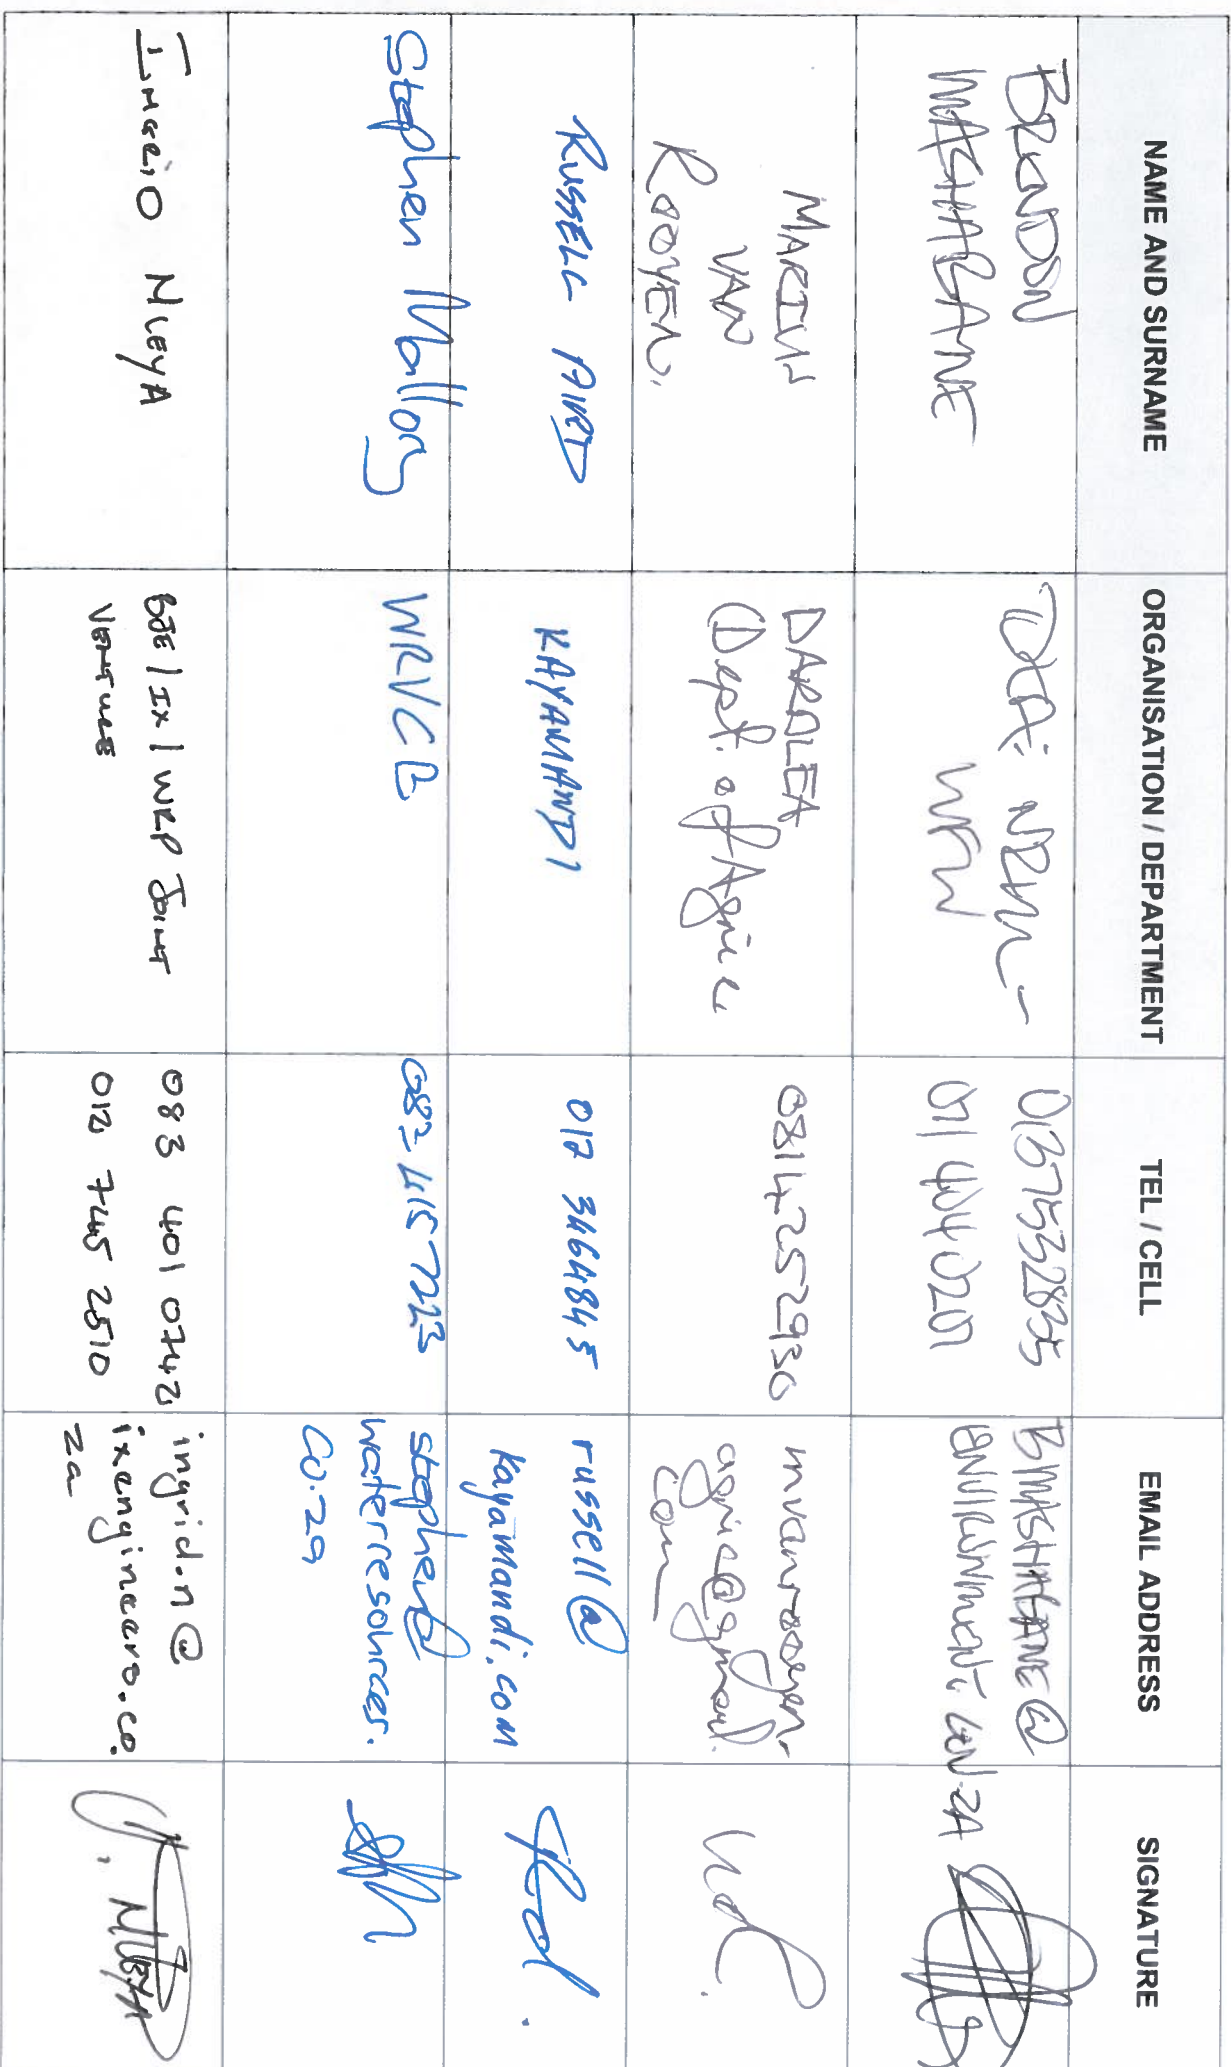 NAME AND SURNAME
ORGANISATION / DEPARTMENT
TEL / CELL
EMAIL ADDRESS
SIGNATURE
BRENDON
MASHABANE
DEA: NRM -
WFW
0137532835
071 4040207
BMASHABANE@
ENVIRONMENT.GOV.ZA
MARIUS
VAN
ROOYEN.
DARDLEA
(Dept. of Agric
0814252930
mvanrooyen.
agric@gmail.
com
RUSSELL AIRD
KAYAMANDI
012 3464845
russell@
kayamandi.com
Stephen Mallory
WRVCB
083 415 7223
stephen@
waterresources.
co.za
INGRID NLEYA
BJE/IX/WRP JOINT
VENTURE
083 401 0742
012 745 2510
ingrid.n@
ixengineers.co.
za
NLEYA